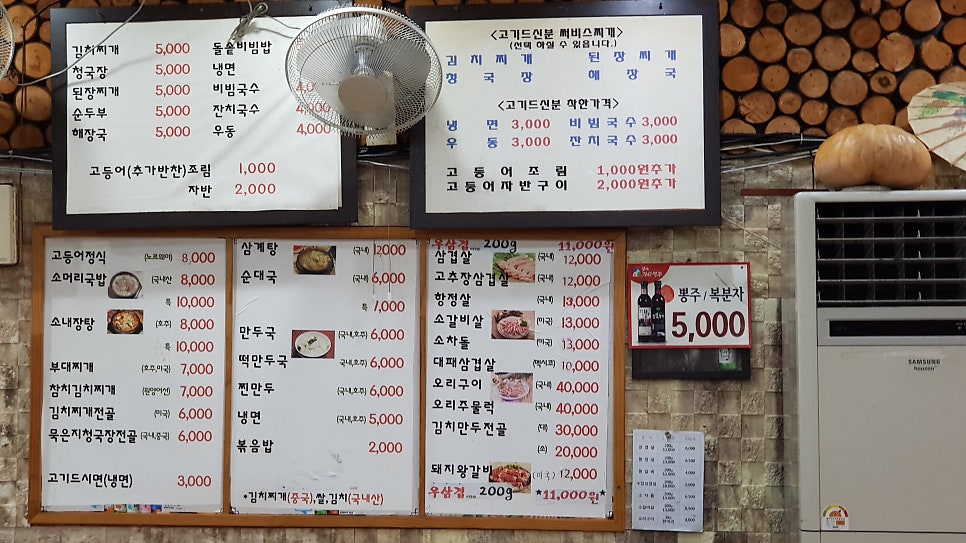 김치찌개 5,000
청국장 5,000
된장찌개 5,000
순두부 5,000
해장국 5,000
돌솥비빔밥
냉면
비빔국수
잔치국수
우동 4,000
고등어(추가반찬)조림 1,000
자반 2,000
<고기드신분 써비스찌개>
(선택 하실 수 있읍니다.)
김치찌개 된장찌개
청국장 해장국
<고기드신분 착한가격>
냉면 3,000 비빔국수 3,000
우동 3,000 잔치국수 3,000
고등어조림 1,000원추가
고등어자반구이 2,000원추가
고등어정식 (노르웨이) 8,000
소머리국밥 (국내산) 8,000
특 10,000
소내장탕 (호주) 8,000
특 10,000
부대찌개 (호주,미국) 7,000
참치김치찌개 (원양어선) 7,000
김치찌개전골 (미국) 6,000
묵은지청국장전골 (국내,중국) 6,000
고기드시면(냉면) 3,000
삼계탕 (국내) 12000
순대국 (국내) 6,000
특 7,000
만두국 (국내,호주) 6,000
떡만두국 (국내,호주) 6,000
찐만두 (국내,호주) 6,000
냉면 (국내,호주) 5,000
볶음밥 2,000
*김치찌개(중국),쌀,김치(국내산)
우삼겹 200g 11,000원
삼겹살 (국내) 12,000
고추장삼겹살 (국내) 12,000
항정살 (국내) 13,000
소갈비살 (미국) 13,000
소차돌 (미국) 13,000
대패삼겹살 (멕시코) 10,000
오리구이 (국내) 40,000
오리주물럭 (국내) 40,000
김치만두전골 (대) 30,000
(소) 20,000
돼지왕갈비 (미국) 12,000
우삼겹 200g *11,000원*
뽕주/복분자
5,000
SAMSUNG
hauzen